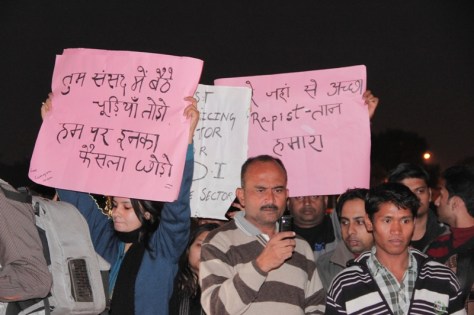 तुम संसद में बैठे
चूड़ियाँ तोड़ो
हम पर इनका
फैसला छोड़ो
ST
ICING
TOR
R
DI
SECTOR
रे जहां से अच्छा
Rapist-तान
हमारा